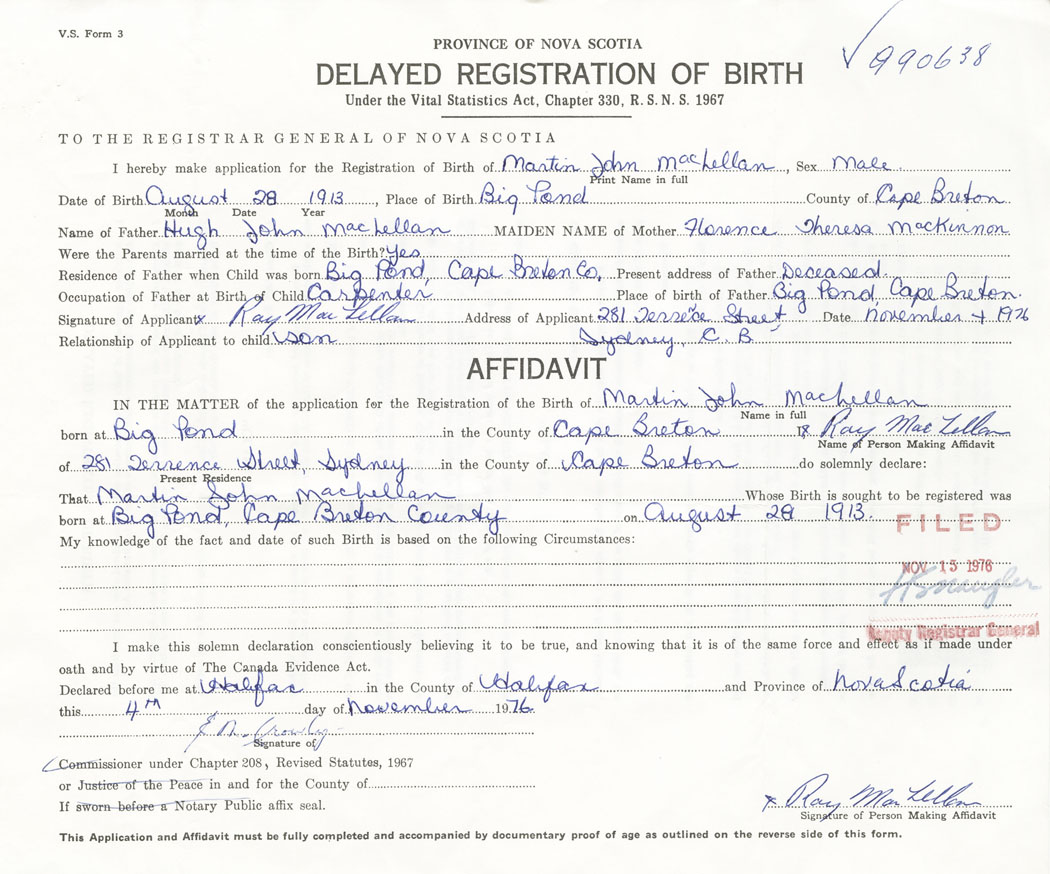 V.S. Form 3
990638
PROVINCE OF NOVA SCOTIA
DELAYED REGISTRATION OF BIRTH
Under the Vital Statistics Act, Chapter 330, R. S. N. S. 1967
TO THE REGISTRAR GENERAL OF NOVA SCOTIA
I hereby make application for the Registration of Birth of Martin John MacLellan, Sex Male
Print Name in full
Date of Birth August 28 1913, Place of Birth Big Pond County of Cape Breton
Month Date Year
Name of Father Hugh John MacLellan MAIDEN NAME of Mother Florence Theresa MacKinnon
Were the Parents married at the time of the Birth? Yes
Residence of Father when Child was born Big Pond, Cape Breton Co, Present address of Father Deceased
Occupation of Father at Birth of Child Carpenter Place of birth of Father Big Pond, Cape Breton.
Signature of Applicant x Ray MacLellan Address of Applicant 281 Terrence Street, Date November 4 1976
Relationship of Applicant to child son Sydney, C. B
AFFIDAVIT
IN THE MATTER of the application for the Registration of the Birth of Martin John MacLellan
Name in full
born at Big Pond in the County of Cape Breton I Ray MacLellan
Name of Person Making Affidavit
of 281 Terrence Street, Sydney in the County of Cape Breton do solemnly declare:
Present Residence
That Martin John MacLellan Whose Birth is sought to be registered was
born at Big Pond, Cape Breton County on August 28 1913.
FILED
My knowledge of the fact and date of such Birth is based on the following Circumstances:
NOV 15 1976
Deputy Registrar General
I make this solemn declaration conscientiously believing it to be true, and knowing that it is of the same force and effect as if made under
oath and by virtue of The Canada Evidence Act.
Declared before me at Halifax in the County of Halifax and Province of Nova Scotia
this 4th day of November 1976
Signature of
Commissioner under Chapter 208, Revised Statutes, 1967
or Justice of the Peace in and for the County of
If sworn before a Notary Public affix seal.
x Ray MacLellan
Signature of Person Making Affidavit
This Application and Affidavit must be fully completed and accompanied by documentary proof of age as outlined on the reverse side of this form.